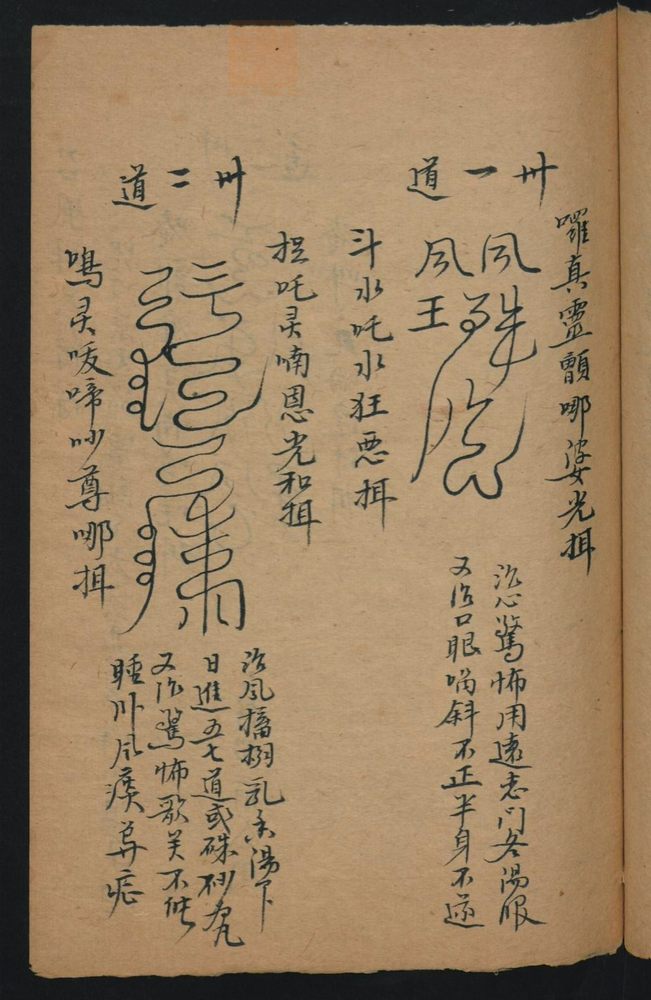 囉真靈顖哪娑光揖
卅一道
治心驚怖用遠志门冬湯服
又治口眼喎斜不正半身不遂
斗水吒水狂恶揖
吒灵喃恩光和揖
卅二道
治风搐搦乳香湯下
日進五七道或硃砂丸
又治驚怖歌关不能
睡卧风痰等症
鳴灵唆啼吵尊哪揖